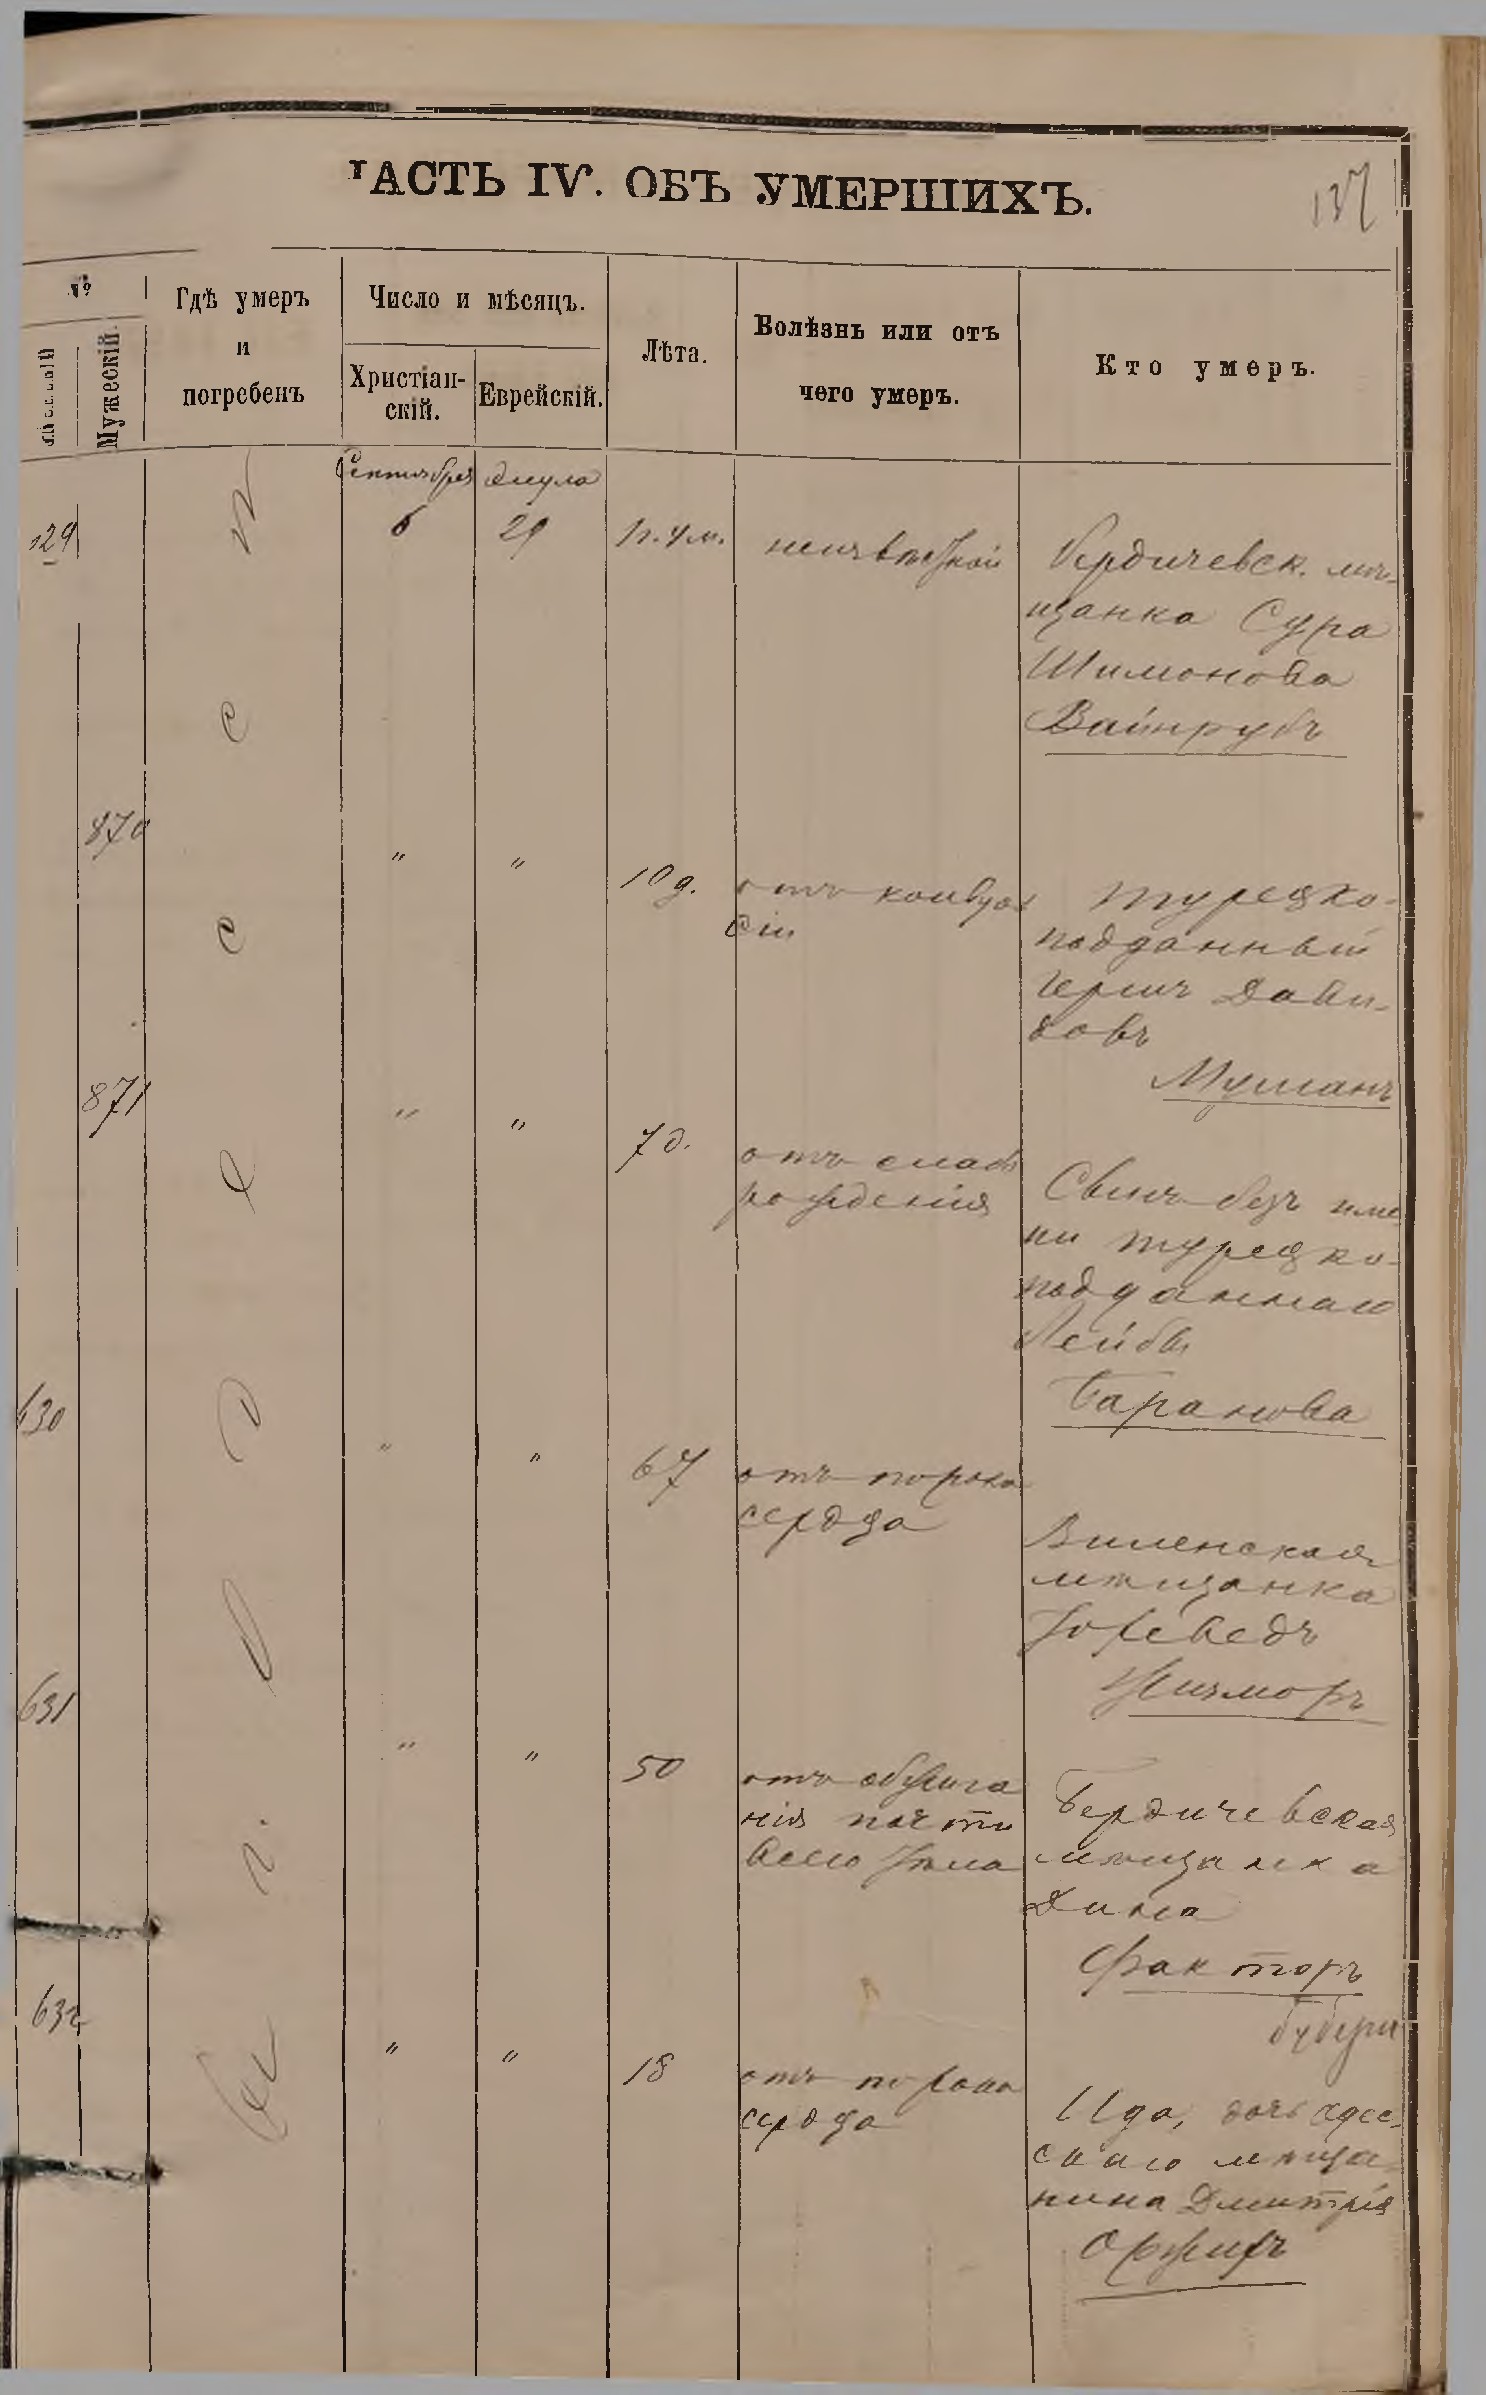 ЧАСТЬ IV. ОБЪ УМЕРШИХЪ.
137
№
Женскій
Мужескій.
Гдѣ умеръ
и
погребенъ
Число и мѣсяцъ.
Христіан-
скій.
Еврейскій.
Лѣта.
Болѣзнь или отъ
чего умеръ.
Кто умеръ.
Сентября
Элула
629
6
29
неизвѣстной
Бердичевск. мѣ-
щанка Сура
Шимонова
Вайнрубъ
870
"
"
10 д.
отъ конвул
сіи
Турецко-
подданный
Герш Дави-
довъ
871
"
"
7 д.
отъ слаб
рожденія
Сынъ безъ име
ни турецко-
подданнаго
Лейбы
Баранова
630
"
"
67
отъ порока
сердца
Виленская
мѣщанка
Іохеведъ
Жижморъ
631
"
"
50
отъ обжига
нія почти
всего тѣла
Бердичевская
мѣщанка
Дина
Факторъ
632
"
"
18
отъ порока
сердца
Ида, дочь одес-
скаго мѣща-
нина Дмитрія
Оржихъ